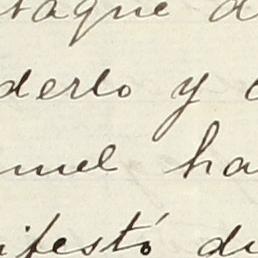 taque d
derlo y
nuel ha
nifestó di